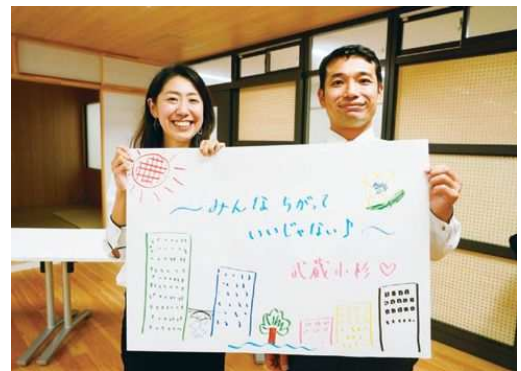 ～みんな ちがって
いいじゃない♪～
武蔵小杉♡